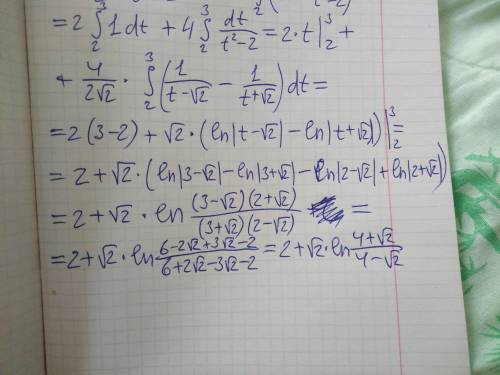 = 2 ∫₂³ 1 dt + 4 ∫₂³ dt/(t²-2) = 2·t |₂³ +
+ 4/(2√2) · ∫₂³ (1/(t-√2) - 1/(t+√2)) dt =
= 2(3-2) + √2 · (ln|t-√2| - ln|t+√2|) |₂³ =
= 2 + √2 · (ln|3-√2| - ln|3+√2| - ln|2-√2| + ln|2+√2|)
= 2 + √2 · ln ((3-√2)(2+√2))/((3+√2)(2-√2)) =
= 2 + √2 · ln (6-2√2+3√2-2)/(6+2√2-3√2-2) = 2 + √2 · ln (4+√2)/(4-√2)